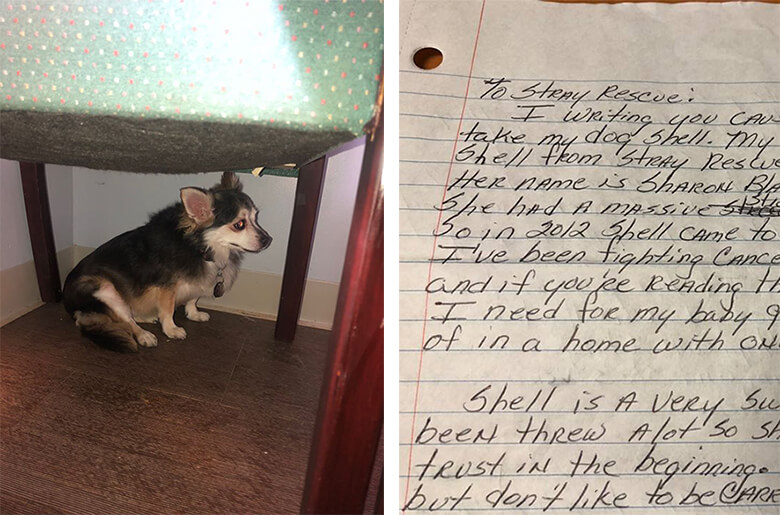 To Stray Rescue:
I writing you CAU
take my dog Shell. My
Shell from Stray Rescu
Her name is Sharon B
She had A massive
So in 2012 Shell came to
I've been fighting Cance
and if you're Reading th
I need for my baby g
of in a home with on
Shell is A very Su
been threw Alot So sh
trust in the beginning.
but don't like to be CARR